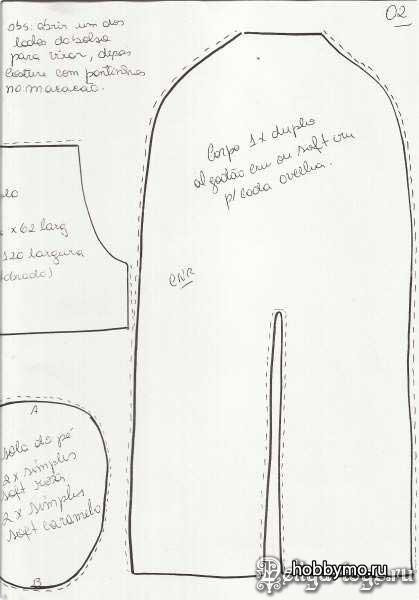 obs: abrir um dos
lados da bolsa
para virar, depois
costure com pontinhos
no macacão.
02
Corpo 1x duplo
algodão cru ou soft cru
p/ cada ovelha.
x 62 larg
120 largura
CNR
A
sola do pé
2x simples
soft rosa
2x simples
soft caramelo
B
hobbymo.ru